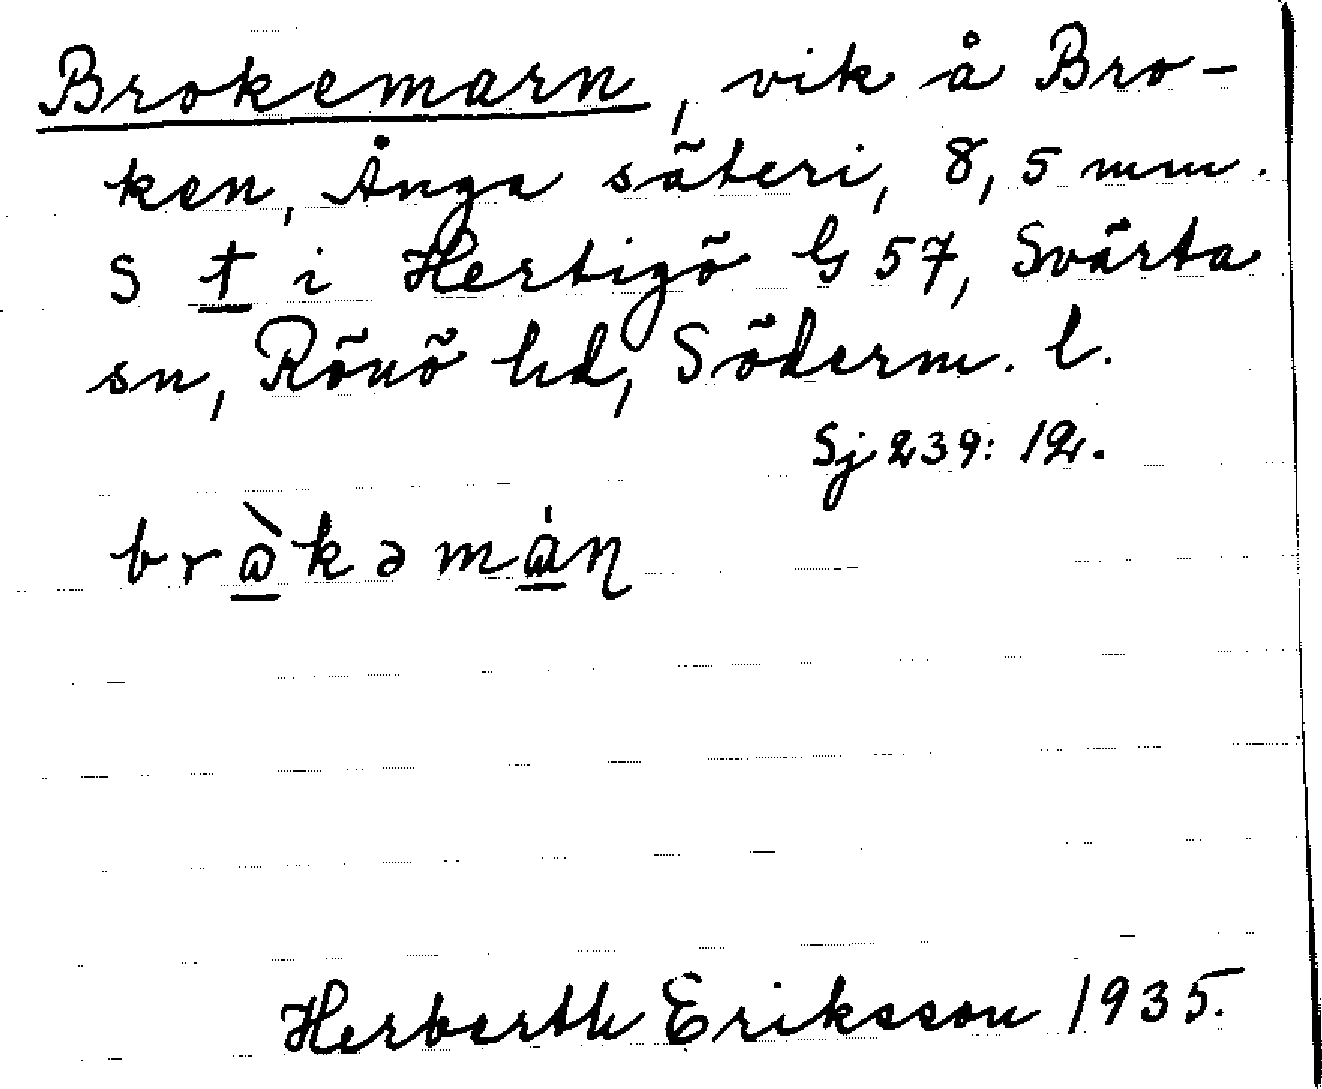 Brokemarn, vik å Bro-
ken, Ånga säteri, 8,5 mm.
S t i Hertigö G 57, Svärta
sn, Rönö hd, Söderm. l.
Sj 239: 12.
Herberth Eriksson 1935.